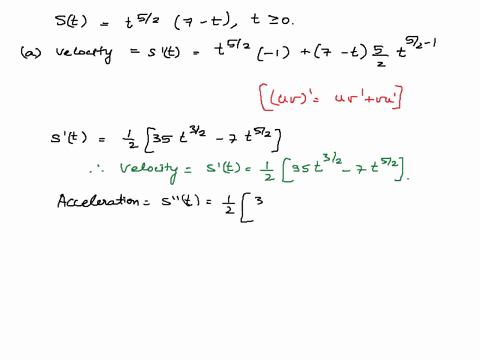 S(t) = t^{5/2} (7-t), t ≥ 0.
(a) Velocity = s'(t) = t^{5/2} (-1) + (7-t) \frac{5}{2} t^{5/2-1}
[(uv)' = uv' + vu']
s'(t) = \frac{1}{2} [35 t^{3/2} - 7 t^{5/2}]
∴ Velocity = s'(t) = \frac{1}{2} [35 t^{3/2} - 7 t^{5/2}].
Acceleration = s''(t) = \frac{1}{2} [3